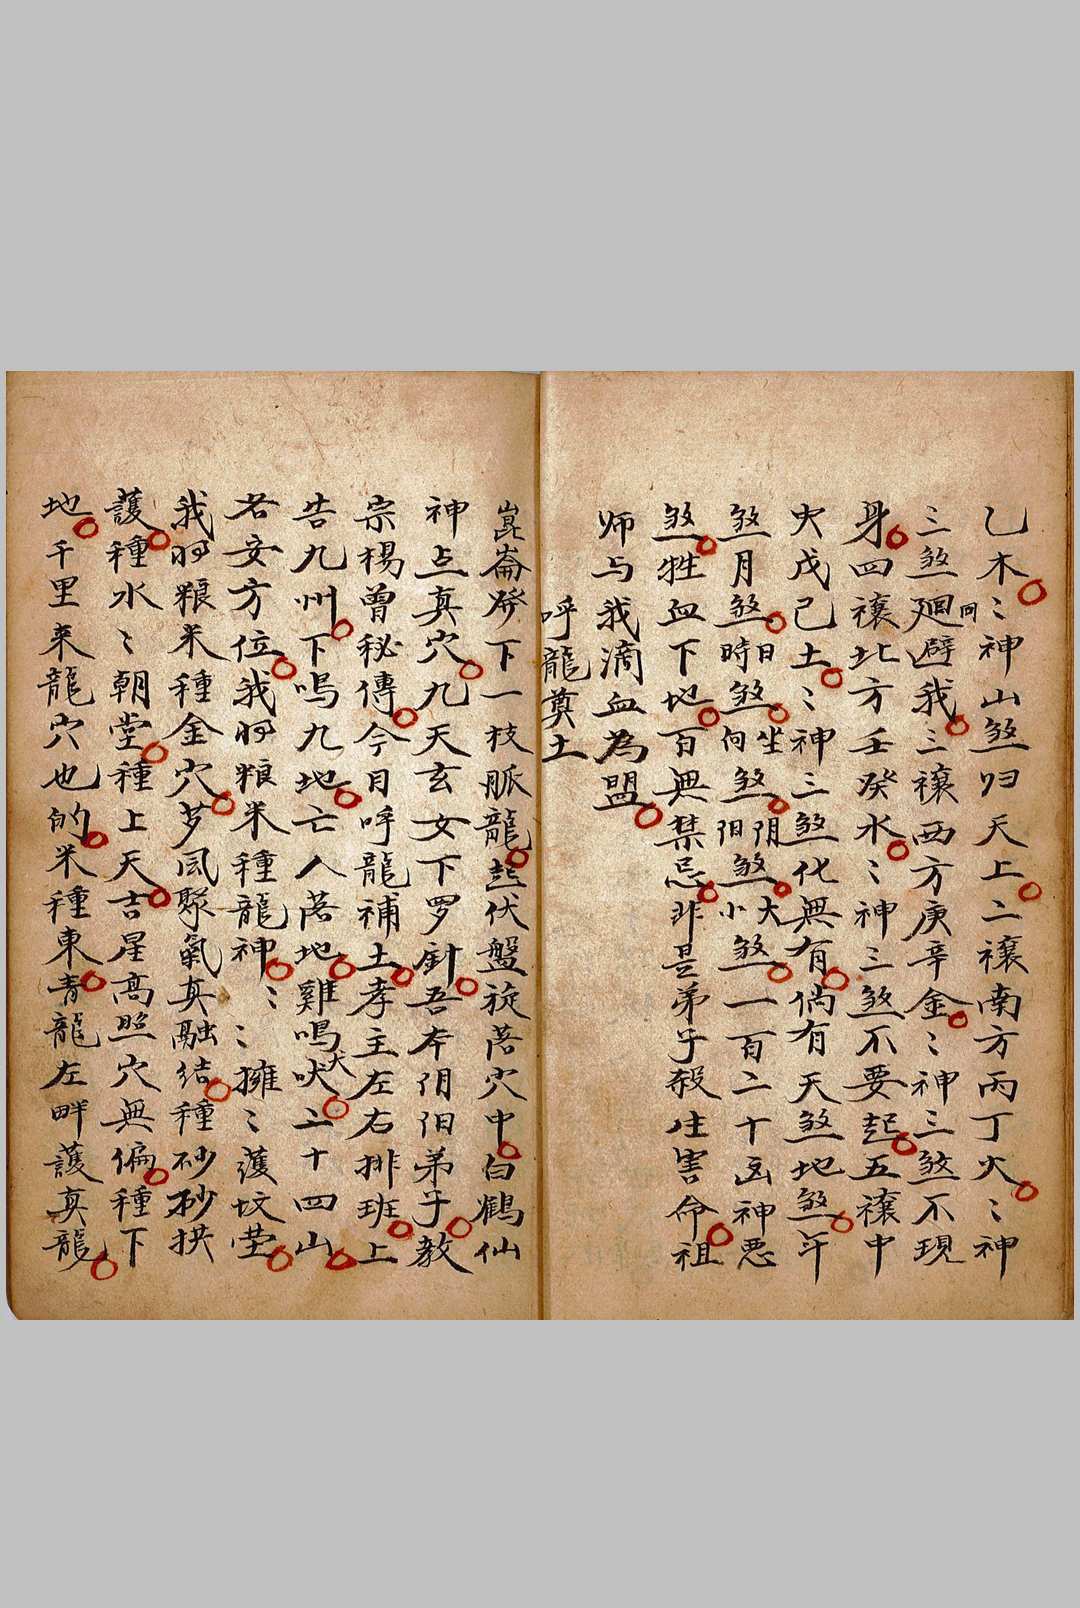 乙木〻神山煞归天上二禳南方丙丁火〻神
三煞廻回避我三禳西方庚辛金〻神三煞不現
身四禳北方壬癸水〻神三煞不要起五禳中
央戊己土〻神三煞化無有倘有天煞地煞年
煞月煞日時煞坐向煞阴阳煞大小煞一百二十凶神悪
煞牲血下地百無禁忌非是弟子殺生害命祖
师与我滴血為盟
呼龍奠土
崑崙發下一枝脈龍起伏盤旋落穴中白鶴仙
神点真穴九天玄女下罗針吾本阴阳弟子教
宗楊曽秘傳今日呼龍補土孝主左右排班上
告九州下鳴九地亡人落地雞鳴犬吠二十四山
若安方位我将粮米種龍神〻〻擁〻護坟塋
我将粮米種金穴罗風聚氣真融結種砂砂拱
護種水〻朝堂種上天吉星高照穴無偏種下
地千里来龍穴也的米種東青龍左畔護真龍